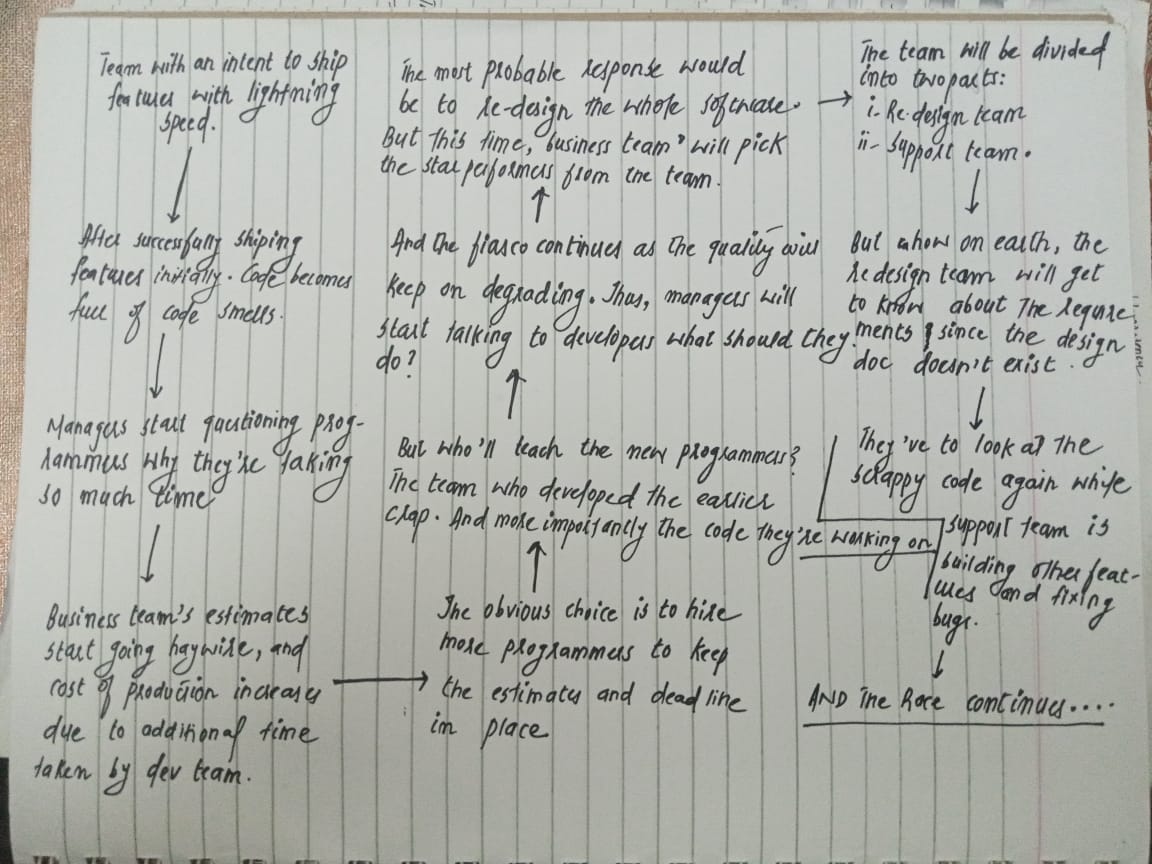 Team with an intent to ship
features with lightning
speed.
After successfully shiping
features initially. Code becomes
full of code smells.
Managers start questioning prog-
rammers why they're taking
so much time
Business team's estimates
start going haywire, and
cost of production increases
due to additional time
taken by dev team.
The obvious choice is to hire
more programmers to keep
the estimates and deadline
in place
But who'll teach the new programmers?
The team who developed the earlier
crap. And more importantly the code they're working on
And the fiasco continues as the quality will
keep on degrading. Thus, managers will
start talking to developers what should they
do?
The most probable response would
be to re-design the whole software.
But this time, business team will pick
the star performers from the team.
The team will be divided
into two parts:
i- Re-design team
ii- Support team.
But how on earth, the
redesign team will get
to know about The require
ments, since the design
doc doesn't exist.
They've to look at the
scrappy code again while
support team is
building other feat-
ures and fixing
bugs.
AND The Race continues....